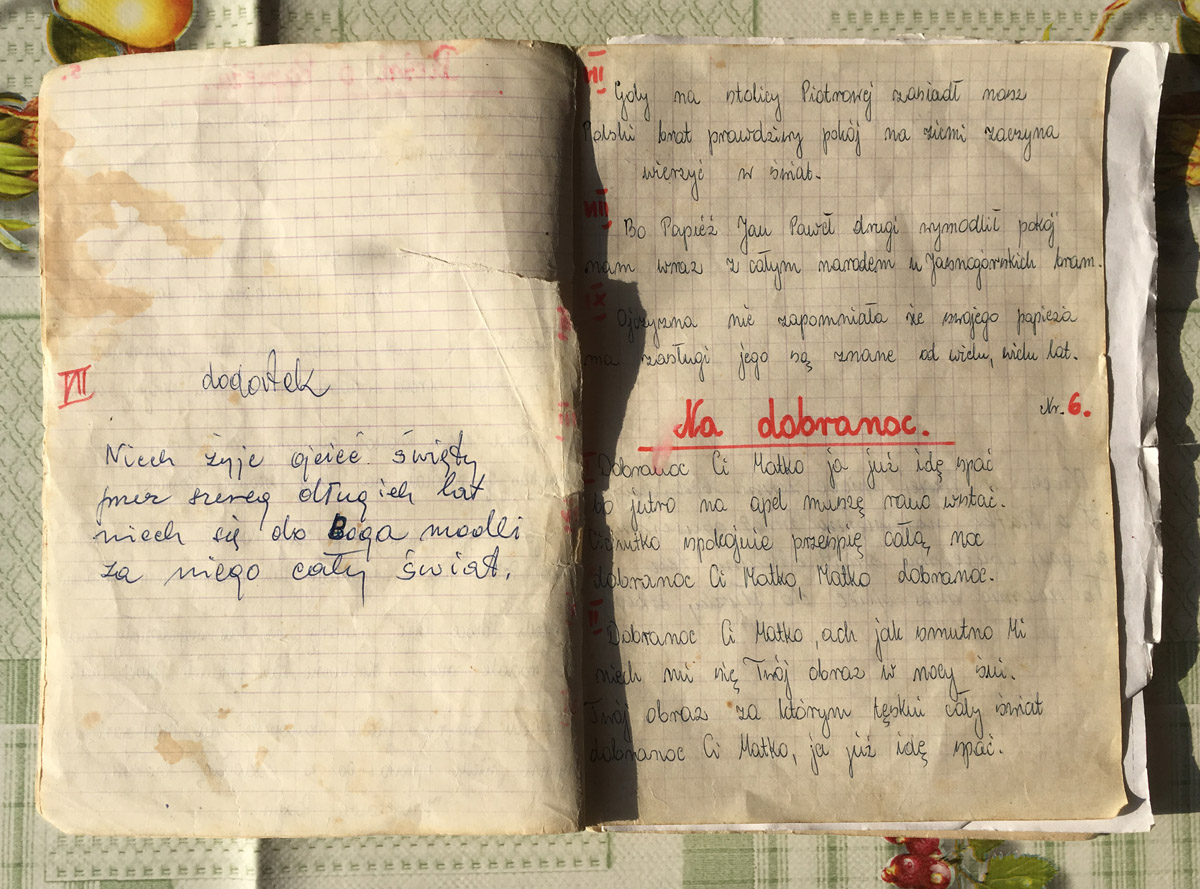 VII
dodatek
Niech żyje ojcieć święty
przez szereg długich lat
niech się do Boga modli
za niego cały świat.
VII
Gdy na stolicy Piotrowej zasiadł nasz
Polski brat prawdziwy pokój na ziemi zaczyna
wierzyć w świat.
VIII
Bo Papież Jan Paweł drugi wymodlił pokój
nam wraz z całym narodem u Jasnogórskich bram.
IX
Ojczyzna nie zapomniała że swojego papieża
na zasługi jego są znane od wielu, wielu lat.
Nr. 6.
Na dobranoc.
I
Dobranoc Ci Matko ja już idę spać
bo jutro na apel muszę rano wstać.
Cichutko spokojnie prześpię całą noc
dobranoc Ci Matko, Matko dobranoc.
II
Dobranoc Ci Matko, ach jak smutno Mi
niech mi się Twój obraz w nocy śni.
Twój obraz za którym tęskni cały świat
dobranoc Ci Matko, ja już idę spać.